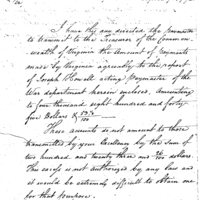 I have this day directed the Paymaster
to transmit to the Treasurer of the Common
wealth of Virginia the amount of payments
made by Virginia agreeably to the report
of Joseph Howell acting paymaster of the
War department herein enclosed, amounting
to four thousand eight hundred and forty
five Dollars &
These accounts do not amount to those
transmitted by your Excellency by the sum of
two hundred and twenty three and 36/100 dollars.
This excess is not authorized by any law and
it would be extremely difficult to obtain one
for that purpose.